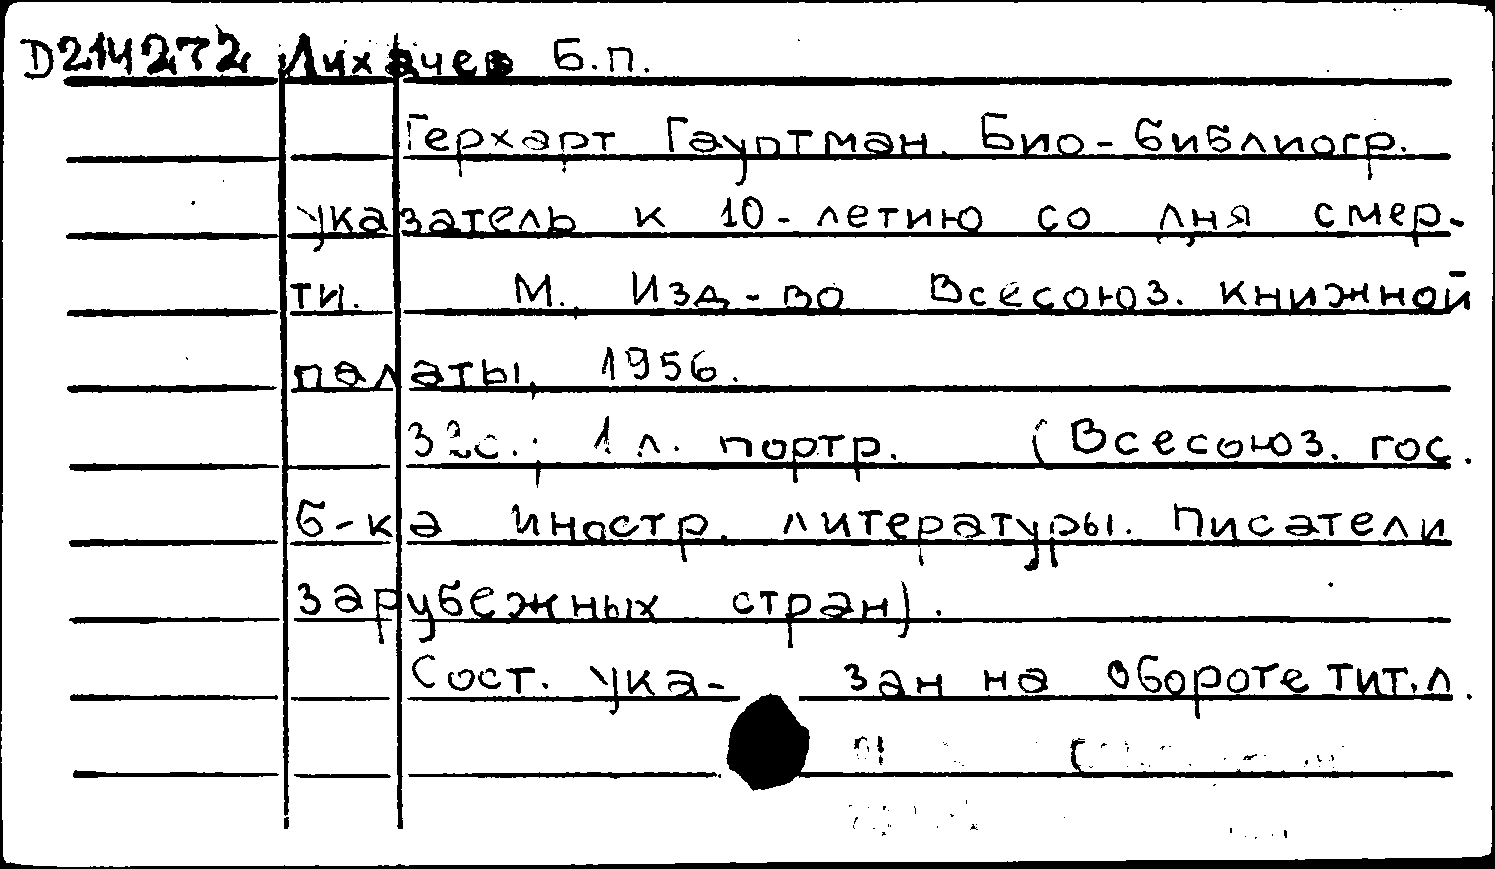 D214272 Лихачев Б.П.
Герхарт Гауптман. Био-библиогр.
указатель к 10-летию со дня смер-
ти. М., Изд-во Всесоюз. книжной
палаты, 1956.
32с.; 1 л. портр. (Всесоюз. гос.
б-ка иностр. литературы. Писатели
зарубежных стран).
Сост. ука- зан на обороте тит.л.